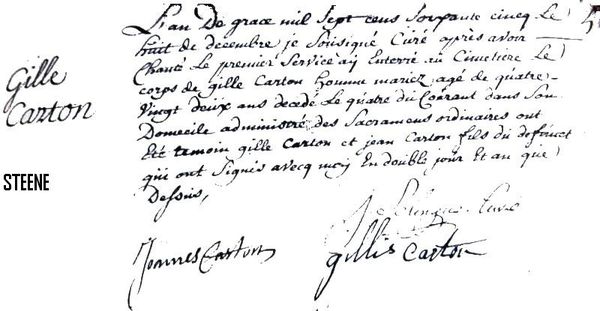 L'an De grace mil Sept cens Soixante cinq Le
huit de decembre je Sousigné Curé après avoir
Chanté Le premier Service aÿ Enterré au Cimetiere Le
corps de gille Carton homme mariez agé de quatre
Vingt deux ans decedé Le quatre du Courant dans Son
Domicile administré des Sacramens ordinaires ont
Eté temoin gille Carton et jean Carton fils du defunct
qui ont Signés avecq moÿ En double jour et an que
Dessus,
Gille
Carton
STEENE
Curé
Joannes Carton
gillis carton